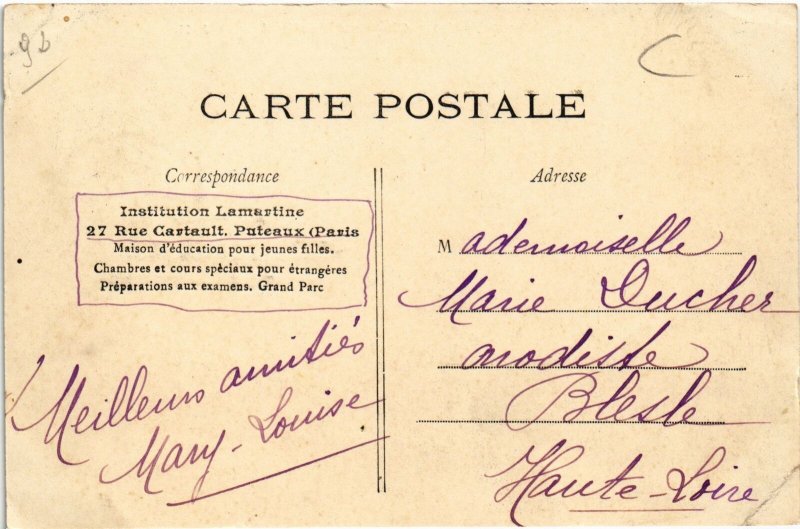 92
CARTE POSTALE
Correspondance
Adresse
Institution Lamartine
27 Rue Cartault. Puteaux (Paris
Maison d'éducation pour jeunes filles.
Chambres et cours spéciaux pour étrangéres
Préparations aux examens. Grand Parc
Meilleurs amitiés
Mary-Louise
Mademoiselle
Marie Ducher
modiste
Blesle
Haute-Loire